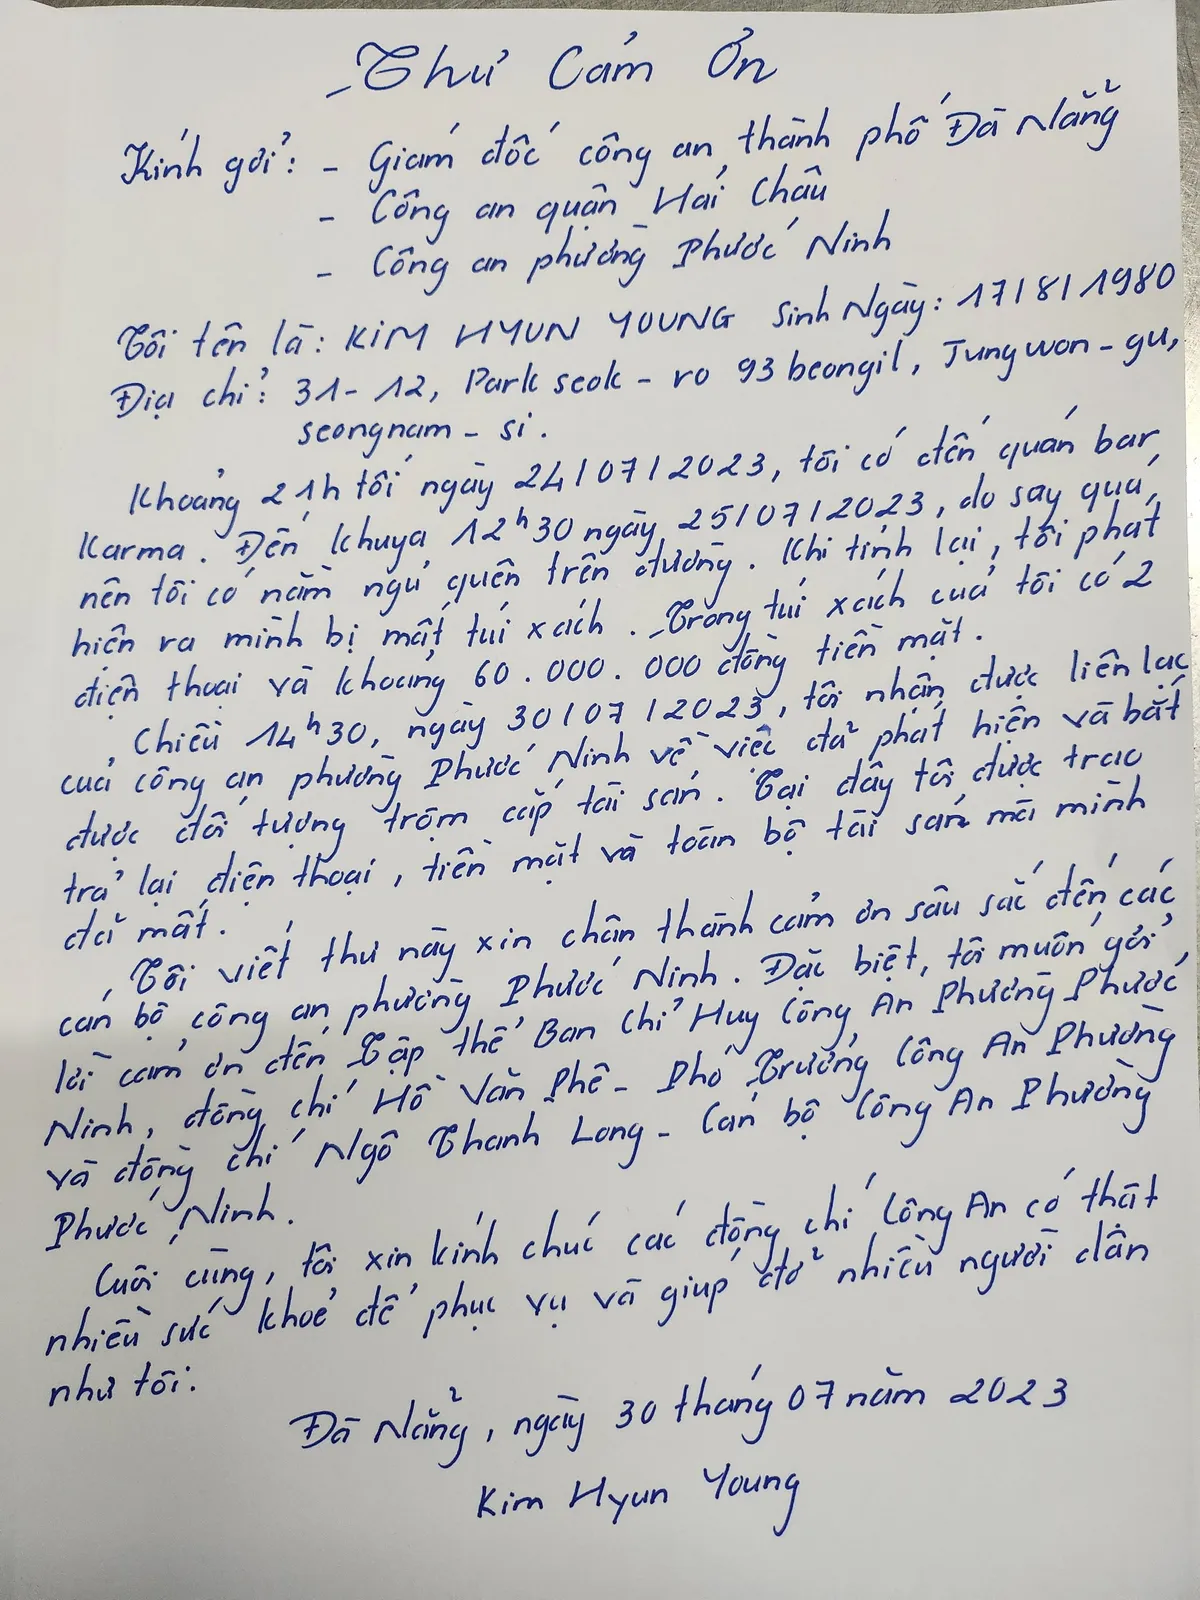 Thư Cảm Ơn
Kính gởi: - Giám đốc công an thành phố Đà Nẵng
- Công an quận Hải Châu
- Công an phường Phước Ninh
Tôi tên là: KIM HYUN YOUNG Sinh Ngày: 17/8/1980
Địa chỉ: 31-12, Park seok - ro 93 beongil, Jungwon - gu,
seongnam - si.
Khoảng 21h tối ngày 24/07/2023, tôi có đến quán bar
Karma. Đến khuya 12h30 ngày 25/07/2023, do say quá,
nên tôi có nằm ngủ quên trên đường. Khi tỉnh lại, tôi phát
hiện ra mình bị mất túi xách. Trong túi xách của tôi có 2
điện thoại và khoảng 60.000.000 đồng tiền mặt.
Chiều 14h30, ngày 30/07/2023, tôi nhận được liên lạc
của công an phường Phước Ninh về việc đã phát hiện và bắt
được đối tượng trộm cắp tài sản. Tại đây tôi được trao
trả lại điện thoại, tiền mặt và toàn bộ tài sản mà mình
đã mất.
Tôi viết thư này xin chân thành cảm ơn sâu sắc đến các
cán bộ công an phường Phước Ninh. Đặc biệt, tôi muốn gởi
lời cảm ơn đến Tập thể Ban Chỉ Huy Công An Phường Phước
Ninh, đồng chí Hồ Văn Phê - Phó Trưởng Công An Phường
và đồng chí Ngô Thanh Long - Cán bộ Công An Phường
Phước Ninh.
Cuối cùng, tôi xin kính chúc các đồng chí Công An có thật
nhiều sức khoẻ để phục vụ và giúp đỡ nhiều người dân
như tôi.
Đà Nẵng, ngày 30 tháng 07 năm 2023
Kim Hyun Young